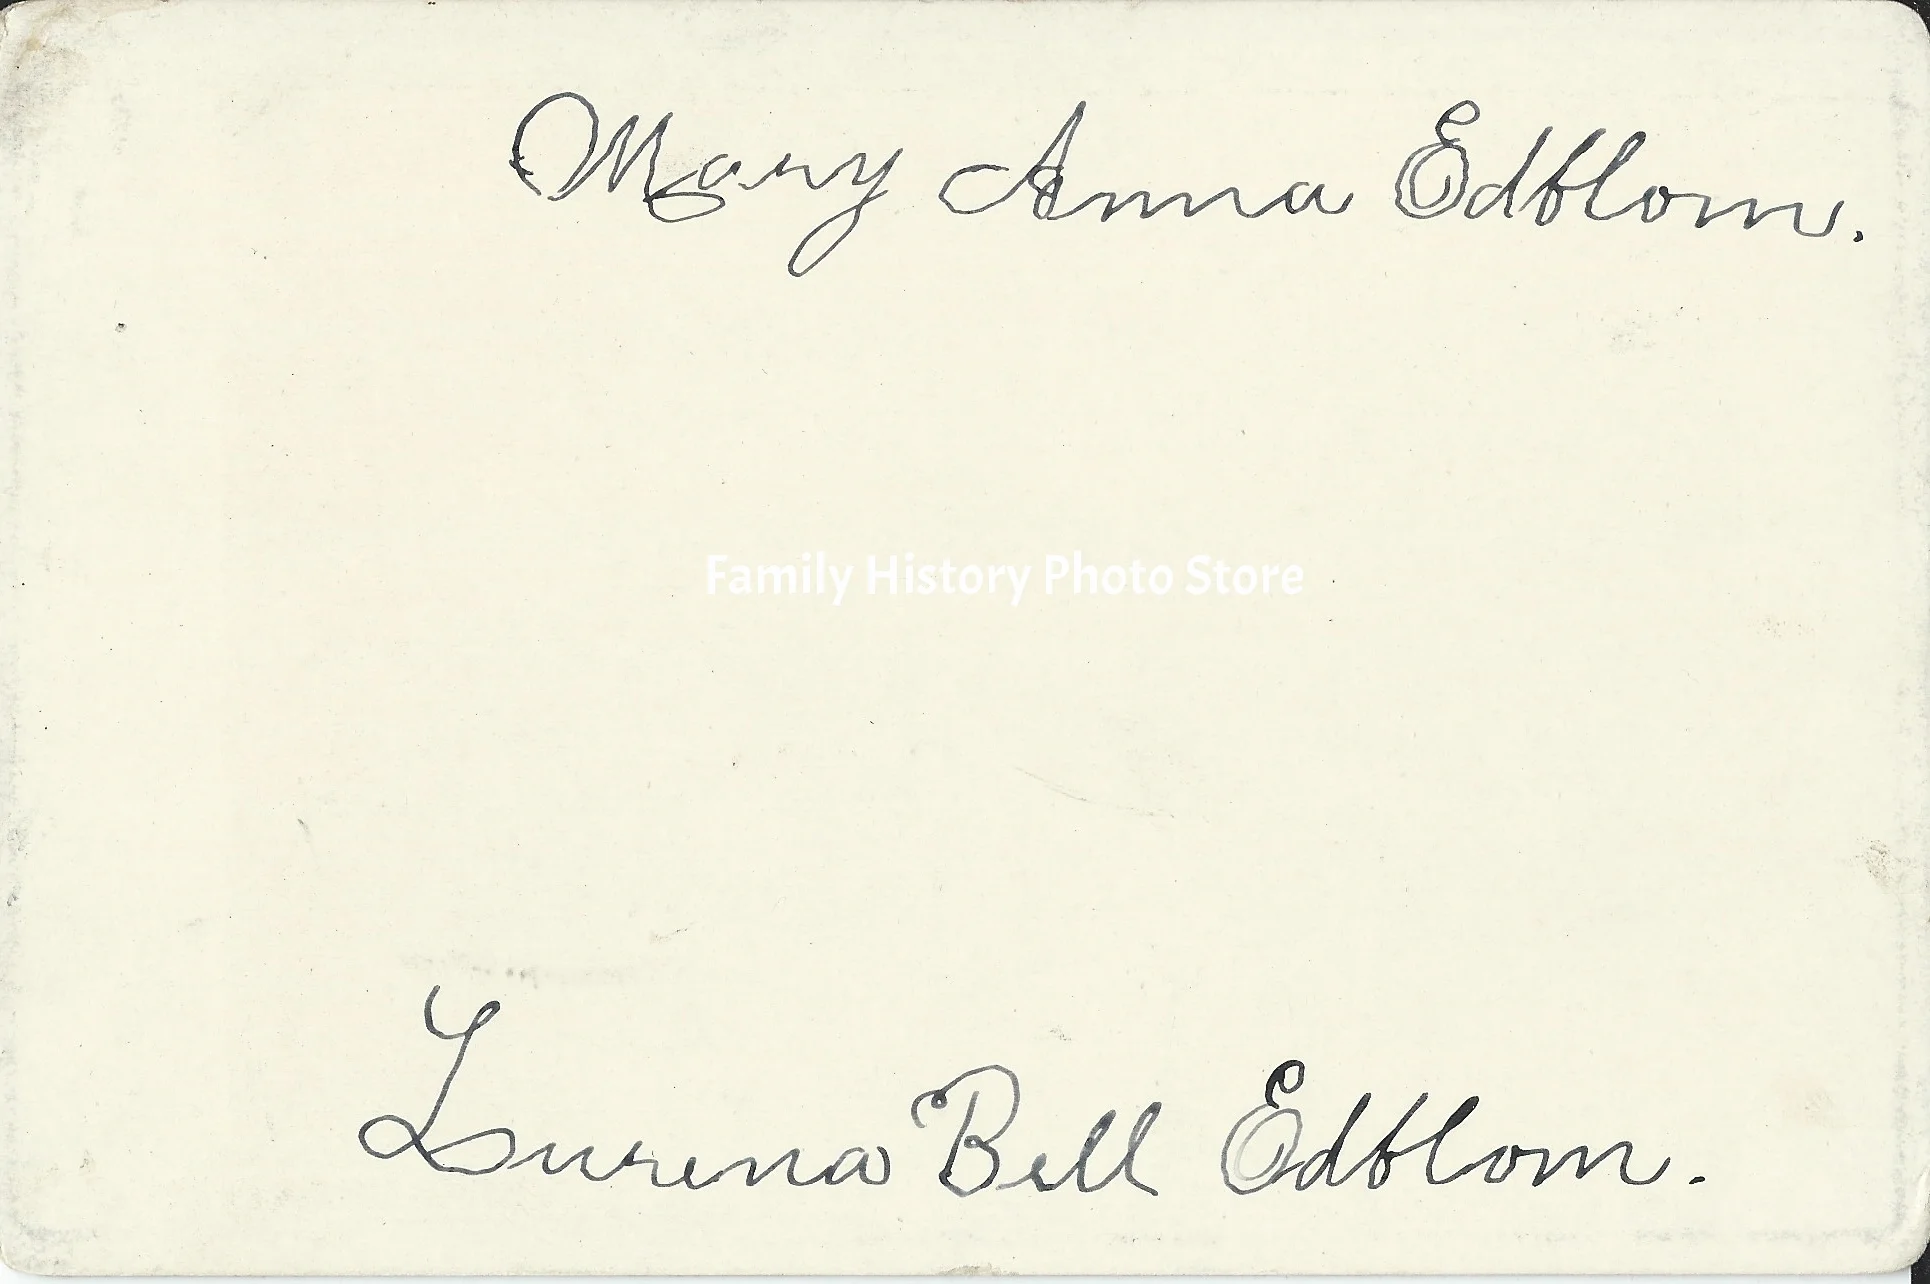 Mary Anna Edblom.
Family History Photo Store
Lurena Bell Edblom.